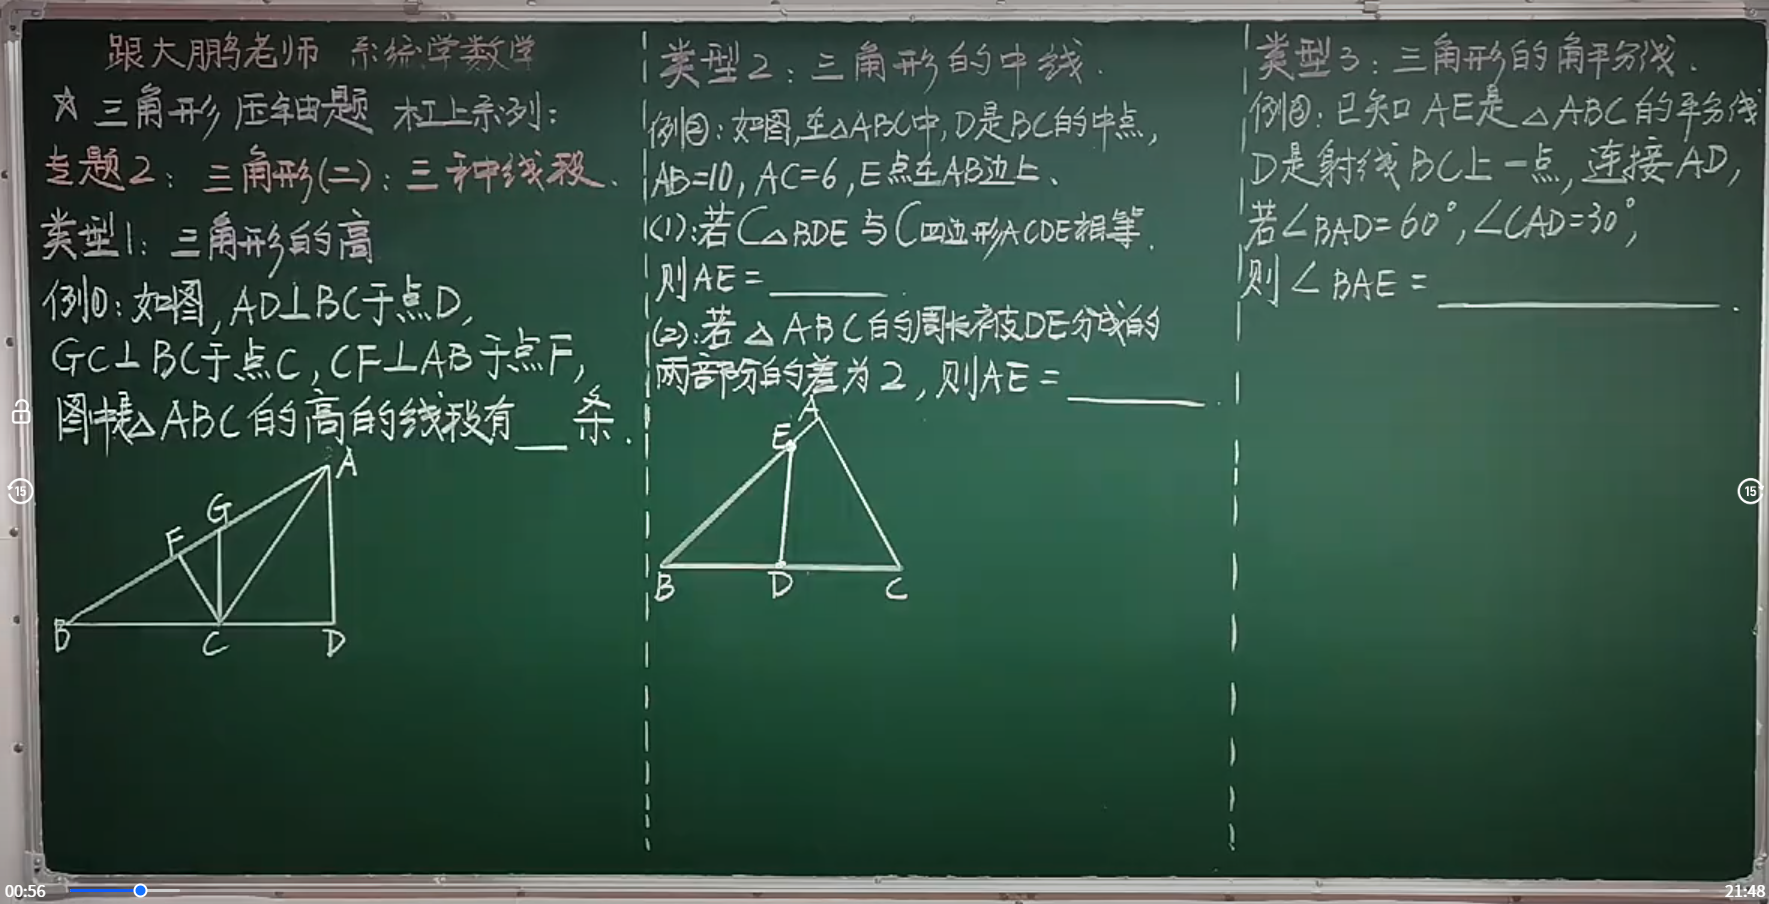 跟大鹏老师 系统学数学
☆三角形压轴题 杠上系列:
专题2: 三角形(二): 三种线段.
类型1: 三角形的高
例①: 如图, AD⊥BC于点D,
GC⊥BC于点C, CF⊥AB于点F,
图中是△ABC的高的线段有__条.
A
G
F
B
C
D
类型2: 三角形的中线.
例②: 如图, 在△ABC中, D是BC的中点,
AB=10, AC=6, E点在AB边上.
(1): 若C△BDE与C四边形ACDE相等.
则AE=______.
(2): 若△ABC的周长被DE分成的
两部分的差为2, 则AE=______.
A
E
B
D
C
类型3: 三角形的角平分线.
例③: 已知AE是△ABC的平分线
D是射线BC上一点, 连接AD,
若∠BAD=60°, ∠CAD=30°,
则∠BAE=______.
15
15
00:56
21:48